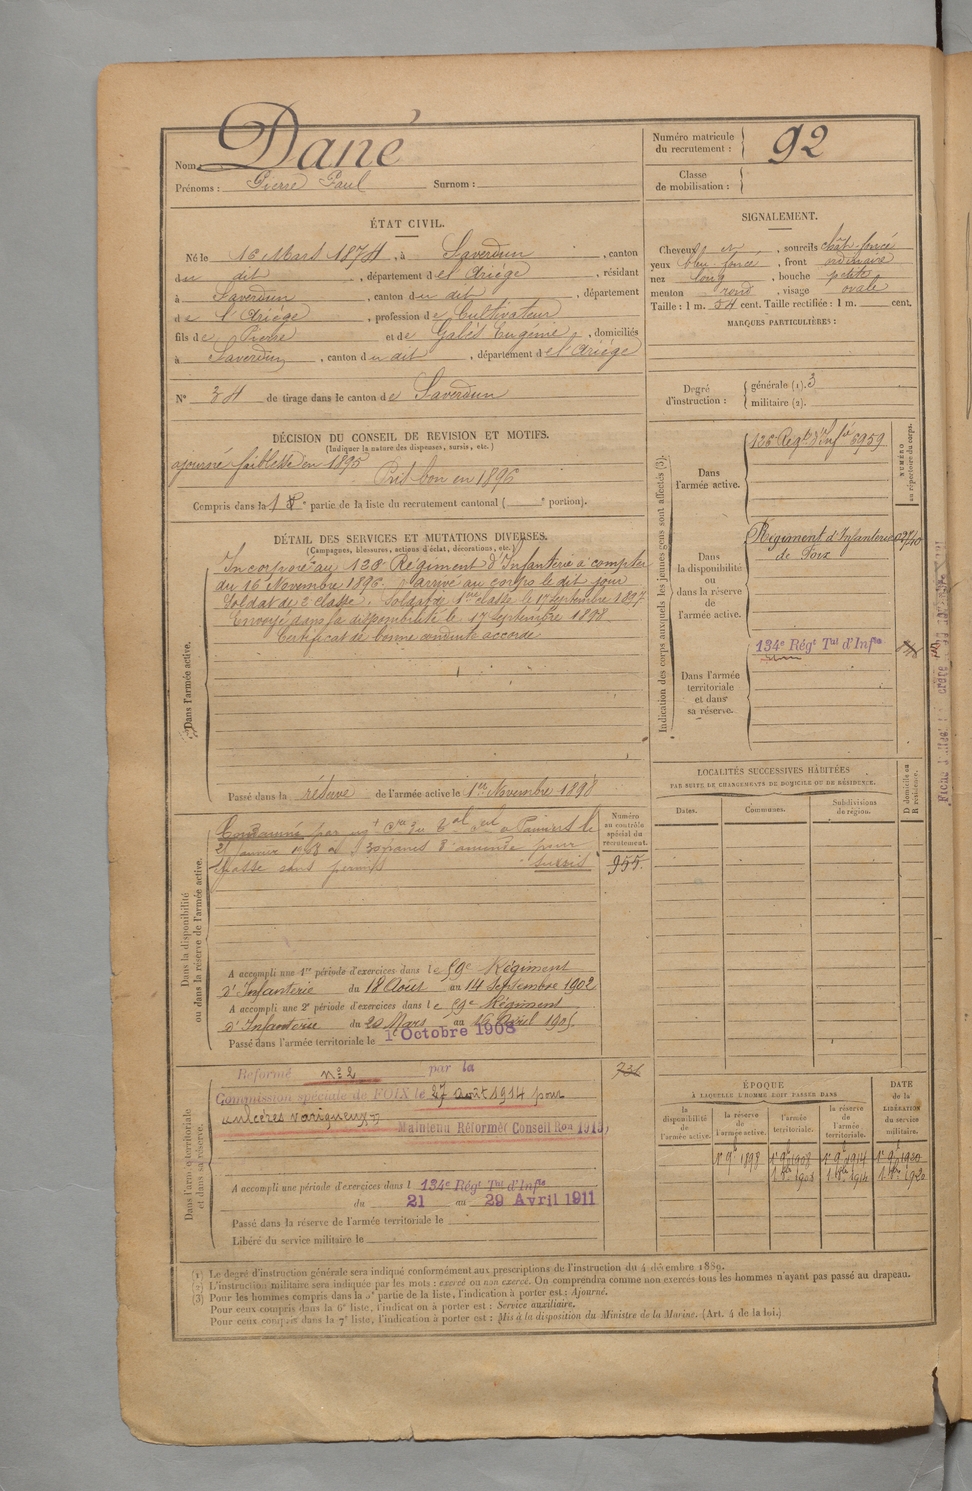 Nom : Dané
Prénoms : Pierre Paul Surnom :
Numéro matricule du recrutement : 92
Classe de mobilisation :
ÉTAT CIVIL.
Né le 16 Mars 1874, à Saverdun, canton
du dit, département de l'Ariége, résidant
à Saverdun, canton du dit, département
de l'Ariége, profession de Cultivateur
fils de Pierre et de Galés Eugénie, domiciliés
à Saverdun, canton du dit, département de l'Ariége
N° 34 de tirage dans le canton de Saverdun
SIGNALEMENT.
Cheveux et, sourcils chât-foncé
yeux bleu-foncé, front ordinaire
nez long, bouche petite
menton rond, visage ovale
Taille : 1 m. 54 cent. Taille rectifiée : 1 m. cent.
MARQUES PARTICULIÈRES :
Degré d'instruction : générale (1). 3
militaire (2).
DÉCISION DU CONSEIL DE REVISION ET MOTIFS.
(Indiquer la nature des dispenses, sursis, etc.)
ajourné faiblesse en 1895
Pris bon en 1896
Compris dans la 1e partie de la liste du recrutement cantonal ( e portion).
DÉTAIL DES SERVICES ET MUTATIONS DIVERSES.
(Campagnes, blessures, actions d'éclat, décorations, etc.)
Dans l'armée active.
Incorporé au 126e Régiment d'Infanterie à compter
du 16 Novembre 1896. arrivé au corps le dit jour
Soldat de 2e classe. Soldat de 1re classe le 17 septembre 1897
Envoyé dans la disponibilité le 17 septembre 1898.
Certificat de bonne conduite accordé
Passé dans la réserve de l'armée active le 1er Novembre 1898
Indication des corps auxquels les jeunes gens sont affectés (3).
NUMÉRO au répertoire du corps.
Dans l'armée active.
126 Régt d'Infie 6959
Dans la disponibilité ou dans la réserve de l'armée active.
Régiment d'Infanterie
de Foix
Dans l'armée territoriale et dans sa réserve.
134e Régt Tal d'Infie
LOCALITÉS SUCCESSIVES HABITÉES
PAR SUITE DE CHANGEMENTS DE DOMICILE OU DE RÉSIDENCE.
Dates. Communes. Subdivisions de région. D domicile ou R résidence.
Dans la disponibilité ou dans la réserve de l'armée active.
Numéro au contrôle spécial du recrutement.
955.
Condamné par jugt Cre du Bal de Pamiers le
21 janvier 1908 à francs d'amende pour
chasse sans permis sursis
A accompli une 1re période d'exercices dans le 59e Régiment
d'Infanterie du 18 Aout au 14 Septembre 1902
A accompli une 2e période d'exercices dans le 59e Régiment
d'Infanterie du 20 Mars au 16 Avril 1905.
Passé dans l'armée territoriale le 1er Octobre 1908
Dans l'armée territoriale et dans sa réserve.
Reformé n° 2 par la
Commission spéciale de FOIX le 27 août 1914 pour
ulcères variqueux
Maintenu Réformé (Conseil Ron 1915)
A accompli une période d'exercices dans l 134e Régt Tal d'Infie
du 21 au 29 Avril 1911
Passé dans la réserve de l'armée territoriale le
Libéré du service militaire le
ÉPOQUE
À LAQUELLE L'HOMME DOIT PASSER DANS
la disponibilité de l'armée active. la réserve de l'armée active. l'armée territoriale. la réserve de l'armée territoriale.
DATE de la LIBÉRATION du service militaire.
1er 9bre 1898 1er 9bre 1908 1er 9bre 1914 1er 9bre 1920
1er 8bre 1908 1er 8bre 1914 1er 8bre 1920
(1) Le degré d'instruction générale sera indiqué conformément aux prescriptions de l'instruction du 4 décembre 1889.
(2) L'instruction militaire sera indiquée par les mots : exercé ou non exercé. On comprendra comme non exercés tous les hommes n'ayant pas passé au drapeau.
(3) Pour les hommes compris dans la 5e partie de la liste, l'indication à porter est : Ajourné.
Pour ceux compris dans la 6e liste, l'indication à porter est : Service auxiliaire.
Pour ceux compris dans la 7e liste, l'indication à porter est : Mis à la disposition du Ministre de la Marine. (Art. 4 de la loi.)